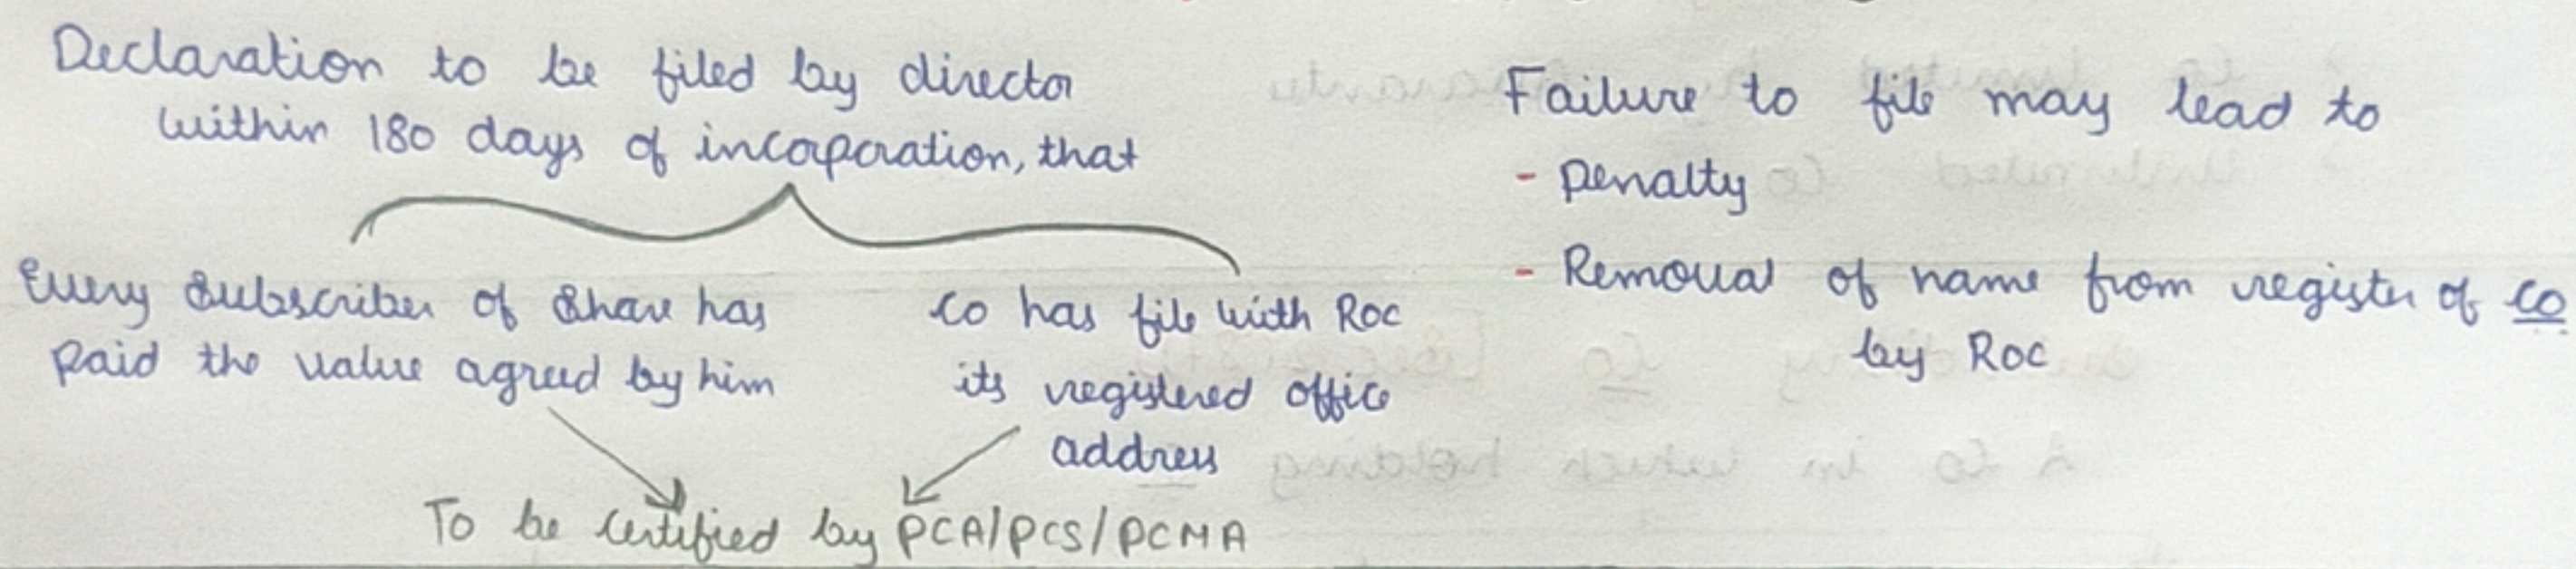 Declaration to be filed by director
within 180 days of incorporation, that
Every Subscriber of Share has
paid the value agreed by him
co has file with Roc
its registered office
address
To be certified by PCA/PCS/PCMA
Failure to file may lead to
- Penalty
- Removal of name from register of co
by Roc